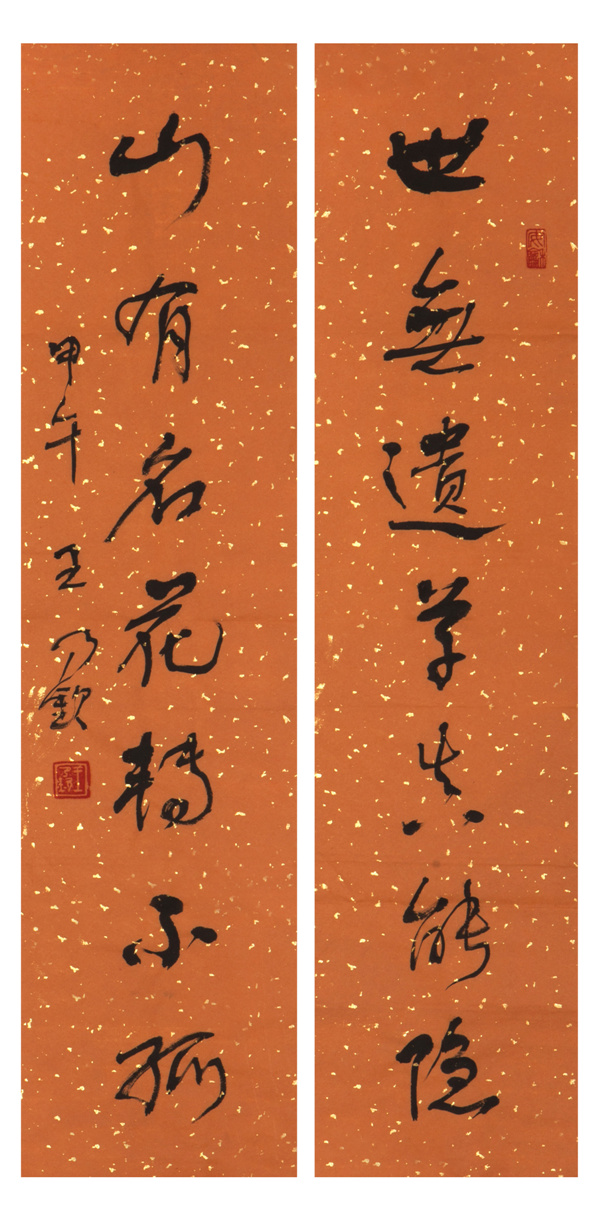 世無遺草真能隐
山有名花轉不孤
甲午王乃欽